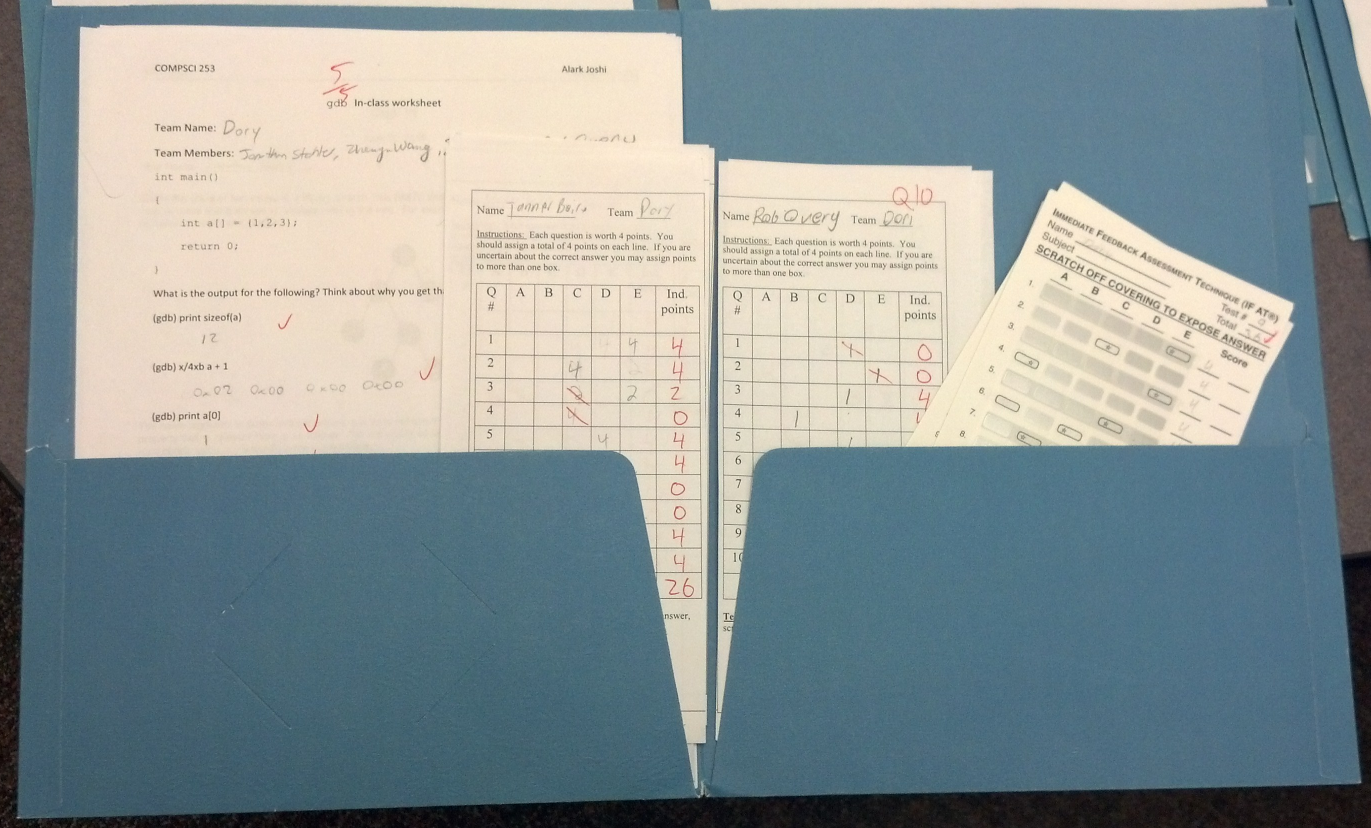 COMPSCI 253
Alark Joshi
5/5
gdb In-class worksheet
Team Name: Dory
Team Members: Zheng-Wang
int main()
{
int a[] = {1,2,3};
return 0;
}
What is the output for the following? Think about why you get th
(gdb) print sizeof(a)
12
(gdb) x/4xb a + 1
0x02 0x00 0x00 0x00
(gdb) print a[0]
1
Name Team Dory
Instructions: Each question is worth 4 points. You
should assign a total of 4 points on each line. If you are
uncertain about the correct answer you may assign points
to more than one box.
Q # A B C D E Ind. points
1 4 4
2 4 4
3 2 2 2
4 4 0
5 4 4
4
0
0
4
4
26
nswer,
Q10
Name Rob Overy Team Dori
Instructions: Each question is worth 4 points. You
should assign a total of 4 points on each line. If you are
uncertain about the correct answer you may assign points
to more than one box.
Q # A B C D E Ind. points
1 0
2 0
3 1 4
4 1
5 1
6
7
8
9
10
Te
sc
IMMEDIATE FEEDBACK ASSESSMENT TECHNIQUE (IF AT®)
Name
Test #
Subject
Total
SCRATCH OFF COVERING TO EXPOSE ANSWER
A B C D E Score
1. 4
2. 4
3. 4
4. 4
5.
6.
7.
8.